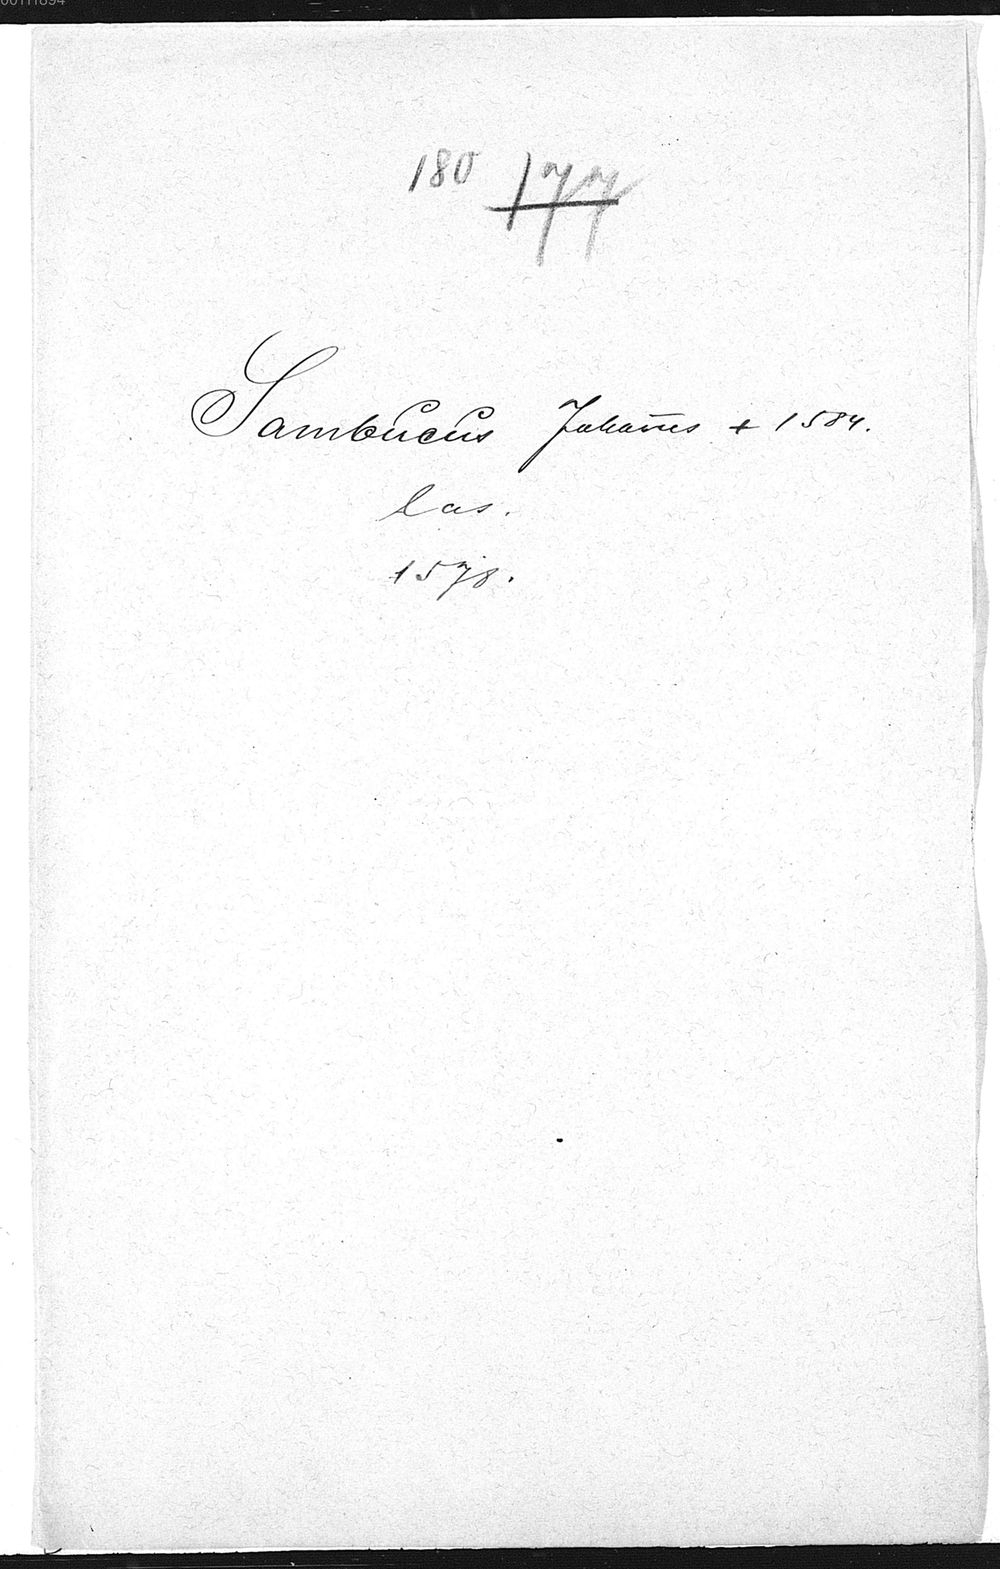 00111894
180 177
Sambucus Johañes + 1584.
las.
1578.